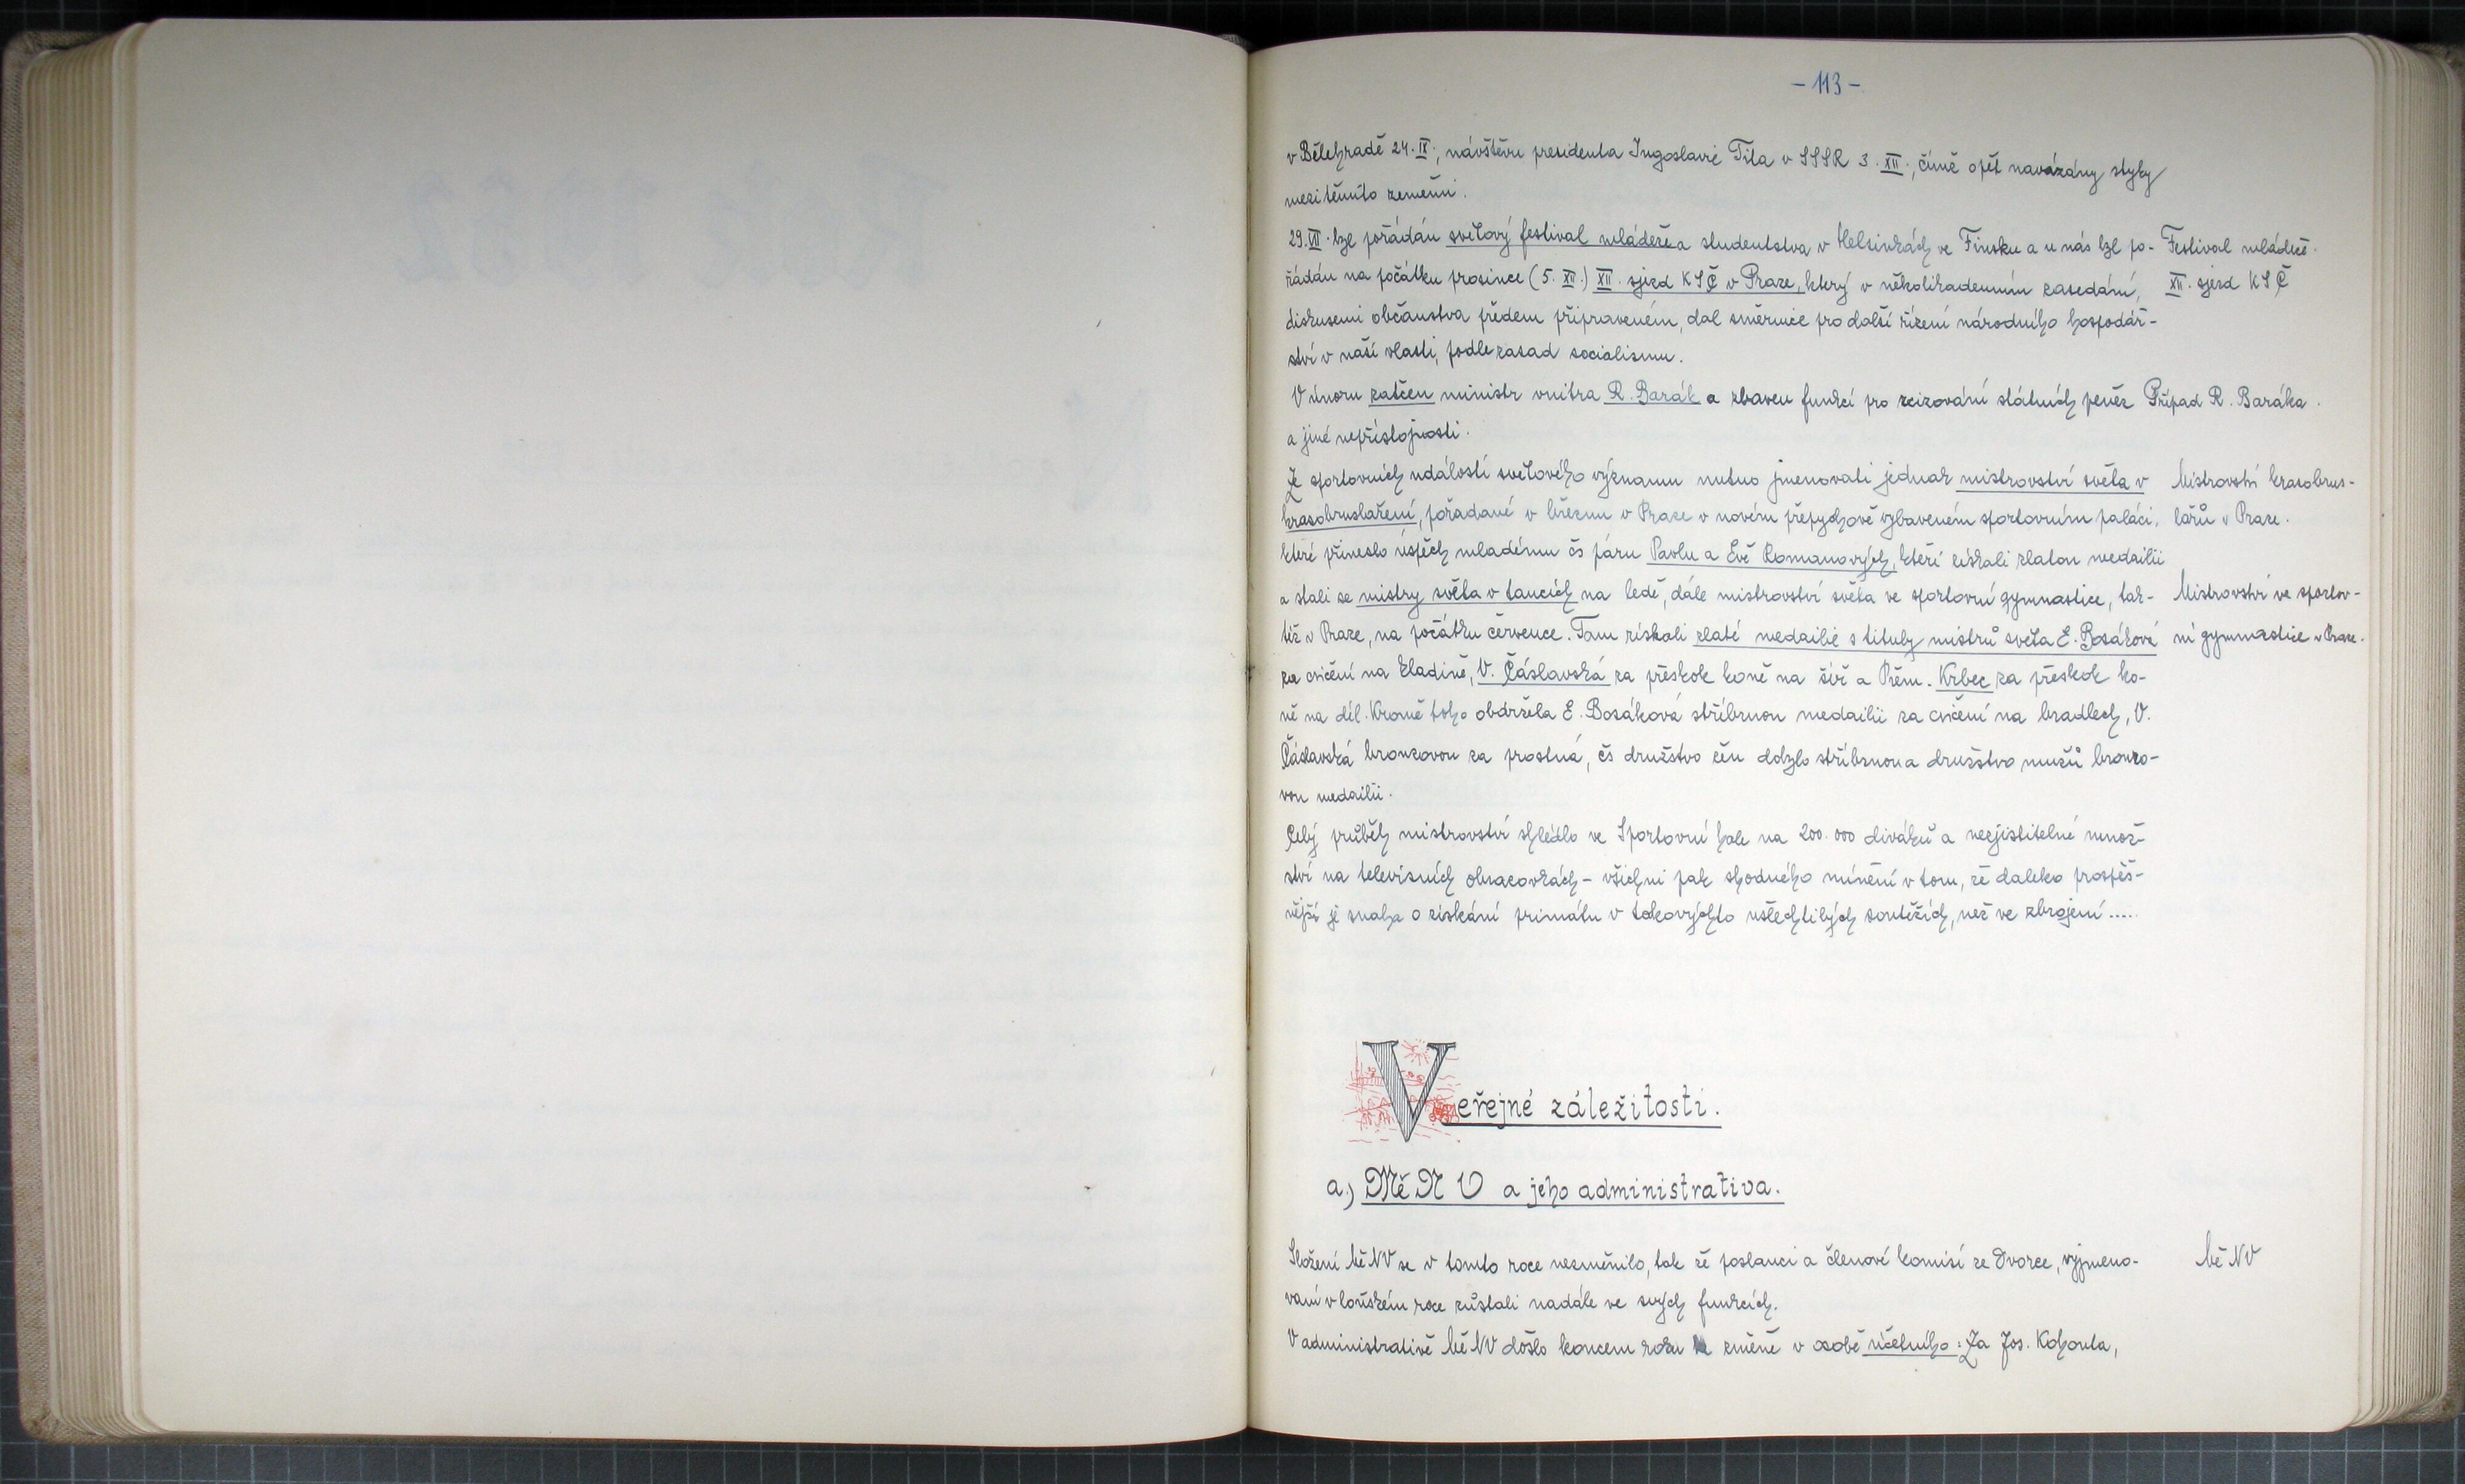 - 113 -
v Bělehradě 24. IX., návštěvu presidenta Jugoslavie Tita v SSSR 3. XII., čímž opět navázány styky
mezi těmito zeměmi.
29. VII. byl pořádán světový festival mládeže a studentstva v Helsinkách ve Finsku a u nás byl po- Festival mládeže.
řádán na počátku prosince (5. XII.) XII. sjezd KSČ v Praze, který v několikadenním zasedání, XII. sjezd KSČ
diskusemi občanstva předem připraveném, dal směrnice pro další řízení národního hospodář-
ství v naší vlasti, podle zasad socialismu.
V únoru zatčen ministr vnitra R. Barák a zbaven funkcí pro zcizování státních peněz Případ R. Baráka.
a jiné nepřístojnosti.
Ze sportovních událostí světového významu nutno jmenovati jednak mistrovství světa v Mistrovství krasobrus-
krasobruslaření, pořadané v březnu v Praze v novém přepychově vybaveném sportovním paláci, lařů v Praze.
které přineslo úspěch mladému čs páru Pavlu a Evě Romanových, kteří získali zlatou medailii
a stali se mistry světa v tancích na ledě, dále mistrovství světa ve sportovní gymnastice, tak- Mistrovství ve sportov-
též v Praze, na počátku července. Tam získali zlaté medailie s tituly mistrů světa E. Bosáková ní gymnastice v Praze.
za cvičení na kladině, V. Čáslavská za přeskok koně na šíř a Přem. Krbec za přeskok ko-
ně na dél. Kromě toho obdržela E. Bosáková stříbrnou medailii za cvičení na bradlech, V.
Čáslavská bronzovou za prostná, čs družstvo žen dobylo stříbrnou a družstvo mužů bronzo-
vou medailii.
Celý průběh mistrovství shlédlo ve Sportovní hale na 200.000 diváků a nezjistitelné množ-
ství na televisních obrazovkách - všichni pak shodného mínění v tom, že daleko prospěš-
nější je snaha o získání primátu v takovýchto ušlechtilých soutěžích, než ve zbrojení .....
Veřejné záležitosti.
a.) MěNV a jeho administrativa.
Složení MěNV se v tomto roce nezměnilo, tak že poslanci a členové komisí ze Dvorce, vyjmeno- MěNV
vaní v loňském roce zůstali nadále ve svých funkcích.
V administrativě MěNV došlo koncem roku k změně v osobě účetního: Za Jos. Kohouta,